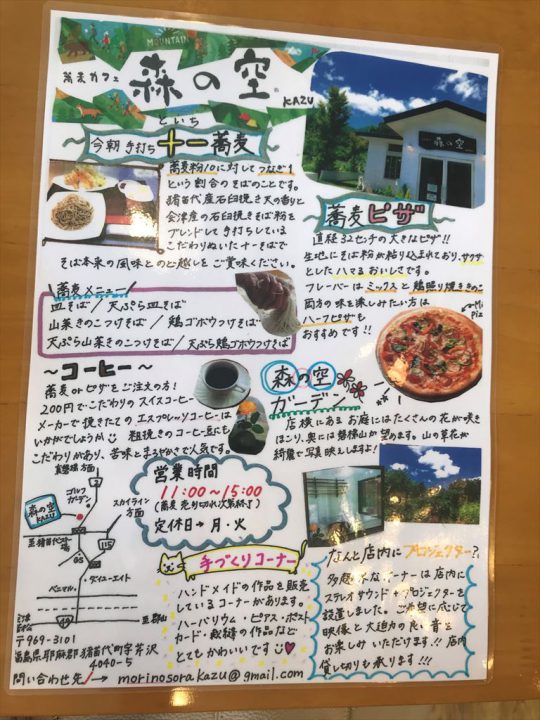 MOUNTAIN
蕎麦カフェ
森の空
KAZU
といち
今朝手打ち 十一蕎麦
蕎麦粉10に対してつなぎ1
という割合のそばのことです。
猪苗代産石臼挽き天の香りと
会津産の石臼挽きそば粉を
ブレンドして手打ちしている
こだわりぬいた十一そばで
そば本来の風味とのど越しをご賞味ください。
蕎麦ピザ
直径32センチの大きなピザ!!
生地にそば粉が練り込まれており、サクサク
としたハマるおいしさです。
フレーバーはミックスと鶏照り焼ききのこ
両方の味を楽しみたい方は
ハーフピザも
おすすめです!!
蕎麦メニュー
皿そば / 天ぷら皿そば
山菜きのこつけそば / 鶏ゴボウつけそば
天ぷら山菜きのこつけそば / 天ぷら鶏ゴボウつけそば
~コーヒー~
蕎麦orピザをご注文の方!
200円でこだわりのスイスコーヒー
メーカーで挽きたてのエスプレッソコーヒーは
いかがでしょうか 粗挽きのコーヒー豆にも
こだわりがあり、苦味とまろやかさで人気です。
森の空
ガーデン
店横にあるお庭にはたくさんの花が咲き
ほこり、奥には磐梯山が望めます。山の草花が
綺麗で写真映えしますよ!
営業時間
11:00~15:00
(蕎麦売り切れ次第終了)
定休日→月・火
裏磐梯方面
ゴルフ
ガーデン
スカイライン
方面
森の空
KAZU
115
GS
ベニマル
ダイユーエイト
49
至郡山
〒969-3101
福島県耶麻郡猪苗代町字芹沢
4040-5
問い合わせ先 → morinosora.kazu@gmail.com
手づくりコーナー
ハンドメイドの作品を販売
しているコーナーがあります。
ハーバリウム・ピアス・ポスト
カード・教精の作品など
とてもかわいいです
なんと店内にプロジェクター?
オーナーは店内に
ステレオサウンド+プロジェクターを
設置しました。ご希望に応じて
映像と大迫力の音を
お楽しみいただけます!! 店内
貸し切りも承ります!!!